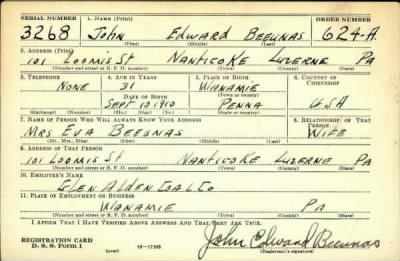 SERIAL NUMBER 1. NAME (Print) ORDER NUMBER
3268 John Edward Beeunas 624-A
(First) (Middle) (Last)
2. ADDRESS (Print)
101 Loomis St Nanticoke Luzerne Pa
(Number and street or R. F. D. number) (Town) (County) (State)
3. TELEPHONE 4. AGE IN YEARS 5. PLACE OF BIRTH 6. COUNTRY OF CITIZENSHIP
None 31 Wanamie
DATE OF BIRTH (Town or county)
Sept 10 1910 Penna USA
(Exchange) (Number) (Mo.) (Day) (Yr.) (State or country)
7. NAME OF PERSON WHO WILL ALWAYS KNOW YOUR ADDRESS 8. RELATIONSHIP OF THAT PERSON
Mrs Eva Beeunas Wife
(Mr., Mrs., Miss) (First) (Middle) (Last)
9. ADDRESS OF THAT PERSON
101 Loomis St Nanticoke Luzerne Pa
(Number and street or R. F. D. number) (Town) (County) (State)
10. EMPLOYER'S NAME
Glen Alden Coal Co
11. PLACE OF EMPLOYMENT OR BUSINESS
Wanamie Pa
(Number and street or R. F. D. number) (Town) (County) (State)
I AFFIRM THAT I HAVE VERIFIED ABOVE ANSWERS AND THAT THEY ARE TRUE.
REGISTRATION CARD
D. S. S. FORM 1 (over) 16—17105 John Edward Beeunas
(Registrant's signature)